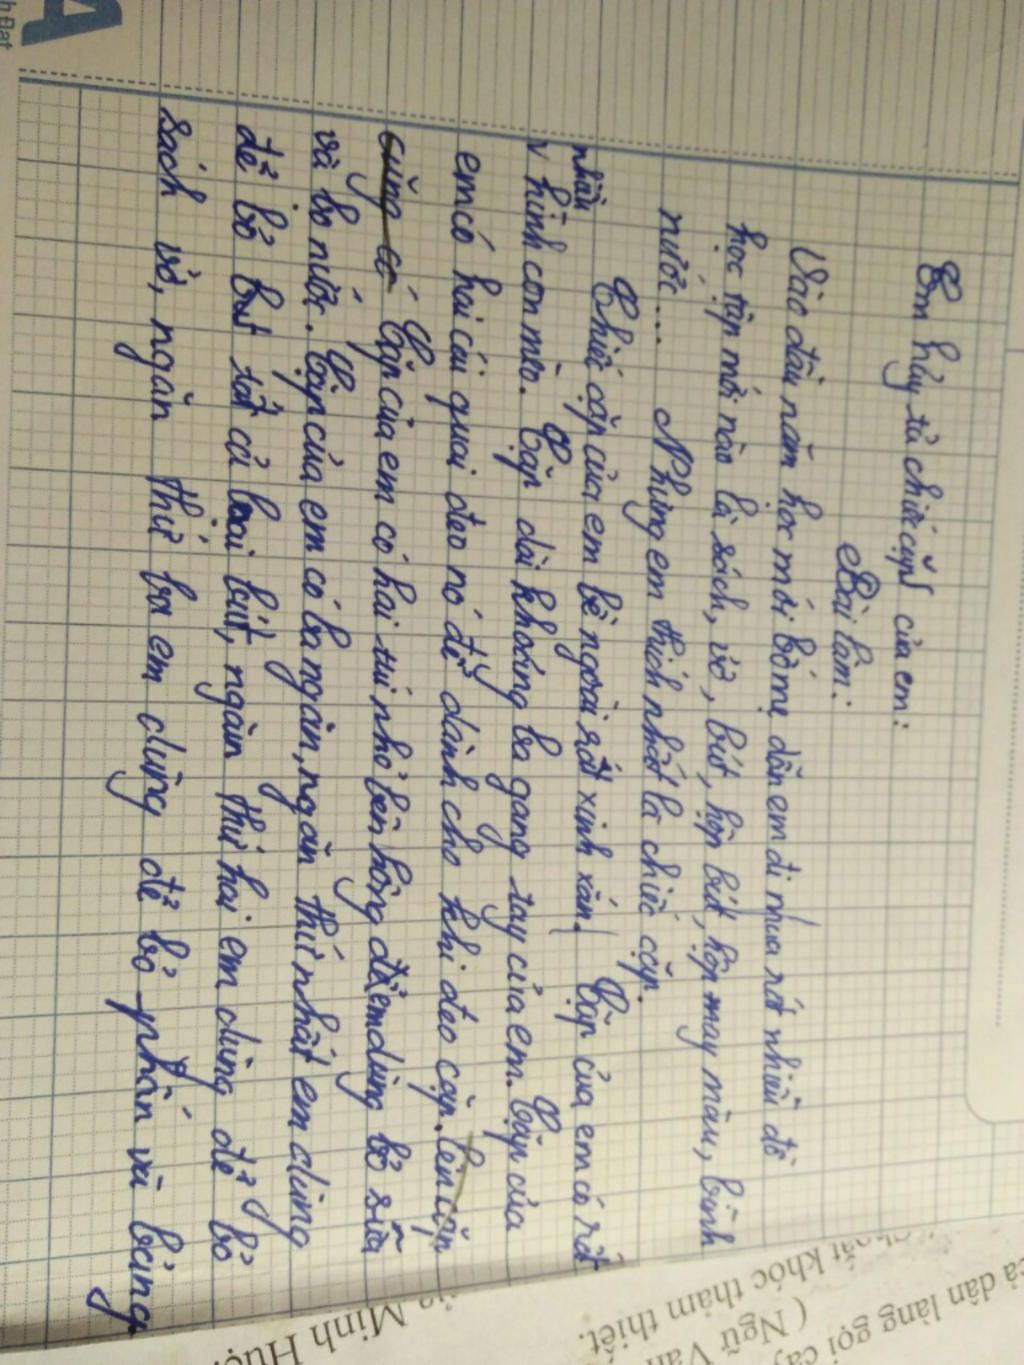 Em hãy tả chiếc cặp của em:
Bài làm:
Vào đầu năm học mới bố mẹ dẫn em đi mua rất nhiều đồ
học tập mới nào là sách, vở, bút, hộp bút, hộp may màu, bình
nước... Nhưng em thích nhất là chiếc cặp.
Chiếc cặp của em bề ngoài rất xinh xắn. Cặp của em có rất
nhiều
v hình con mèo. Cặp dài khoảng ba gang tay của em. Cặp của
em có hai cái quai đeo nó để dành cho khi đeo cặp. Bên cặp
cũng có Cặp của em có hai túi nhỏ bên hông để em dùng bỏ sữa
và bo nước. Cặp của em có ba ngăn, ngăn thứ nhất em dùng
để bỏ bút tất cả loại bút, ngăn thứ hai em dùng để bỏ
sách vở, ngăn thứ ba em dùng để bỏ phấn và bảng
h Đạt
A
cả dân làng gọi
( Ngữ Văn
khóc thảm thiết.
Minh Huệ